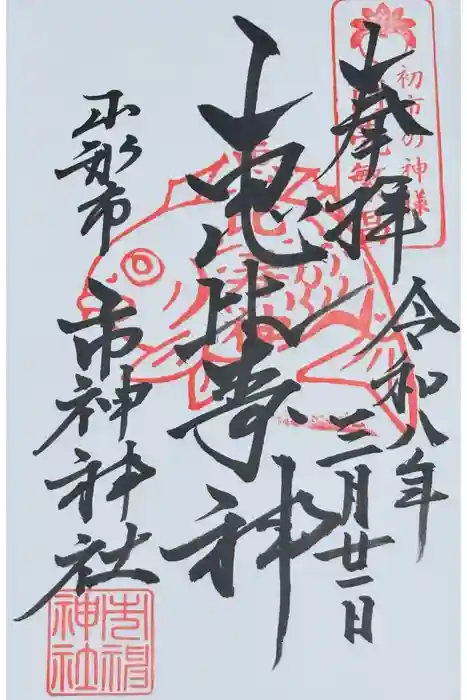 初市の神様
奉拝
令和八年
三月廿一日
恵比寿神
山形市
市神神社
市神
神社